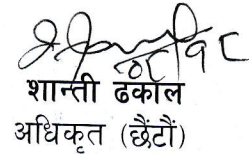 शान्ती ढकाल
अधिकृत (छैंटौं)